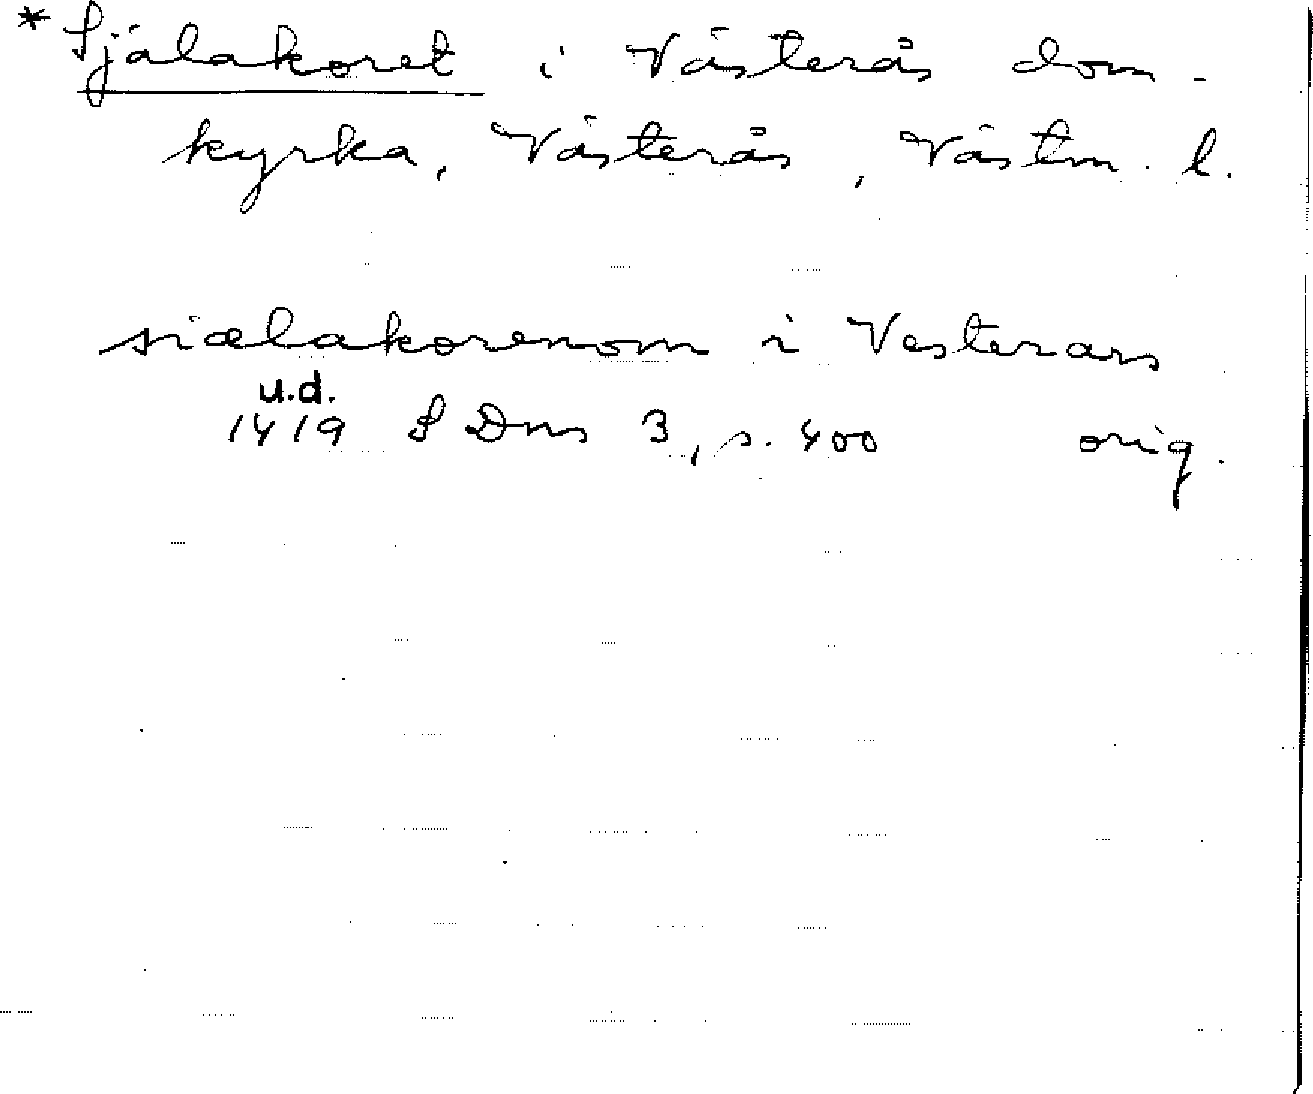 * Själakoret i Västerås dom-
kyrka, Västerås, Västm. l.
siælakorenom i Vesterars
u.d.
1419 S Dns 3, s. 400 orig.